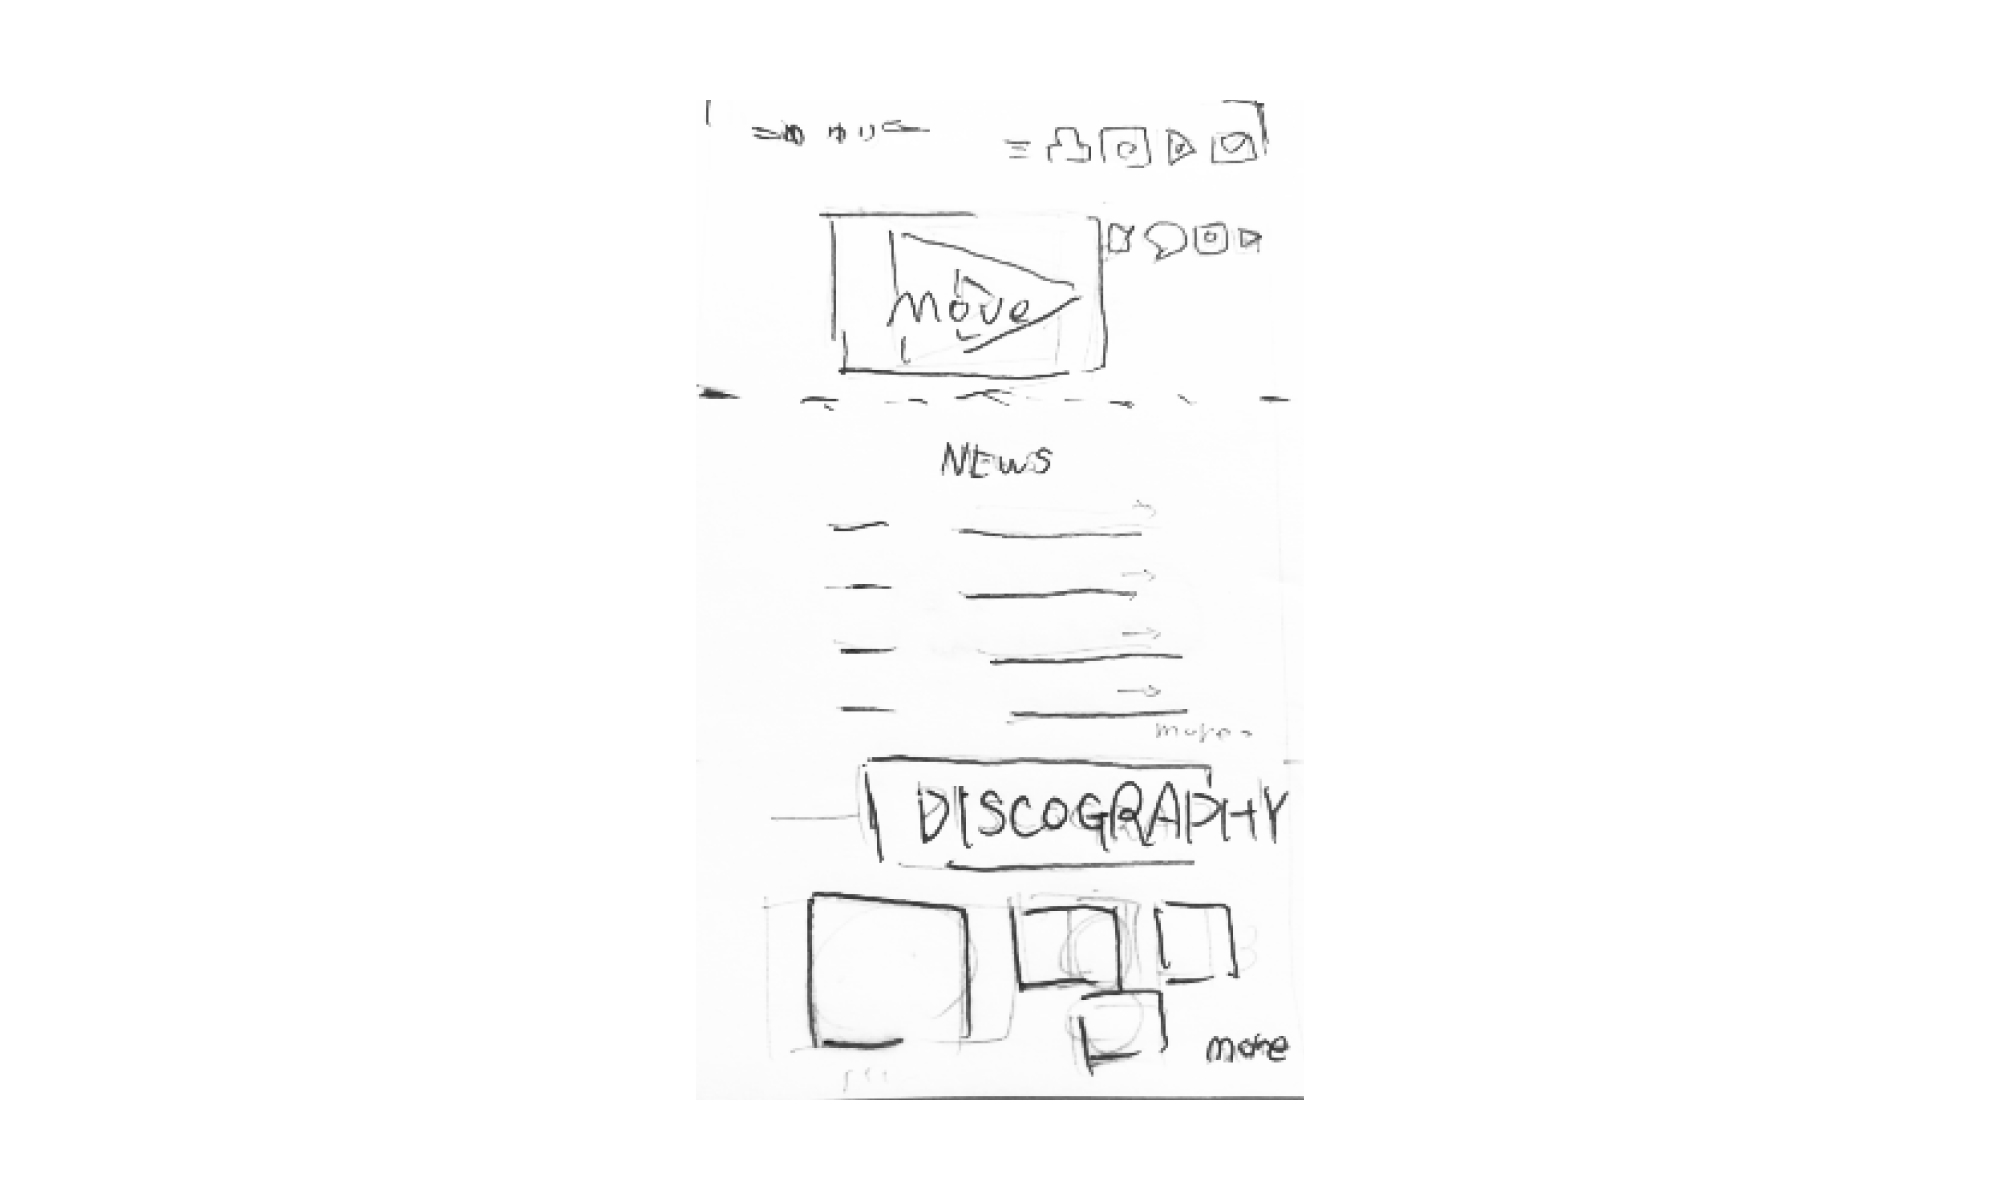 move
NEWS
more
DISCOGRAPHY
more